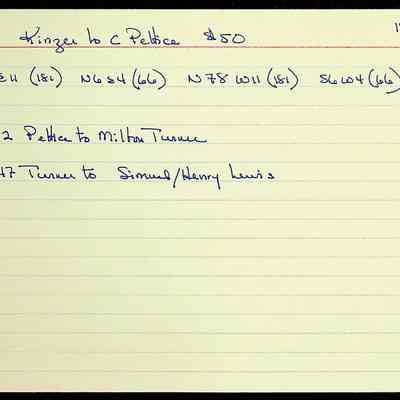 Kinzer to C Pettice $50
E11 (181) N6 S4 (66) N78 W11 (181) S6 W4 (66)
2 Pettice to Milton Turner
47 Turner to Simuel/Henry Lewis